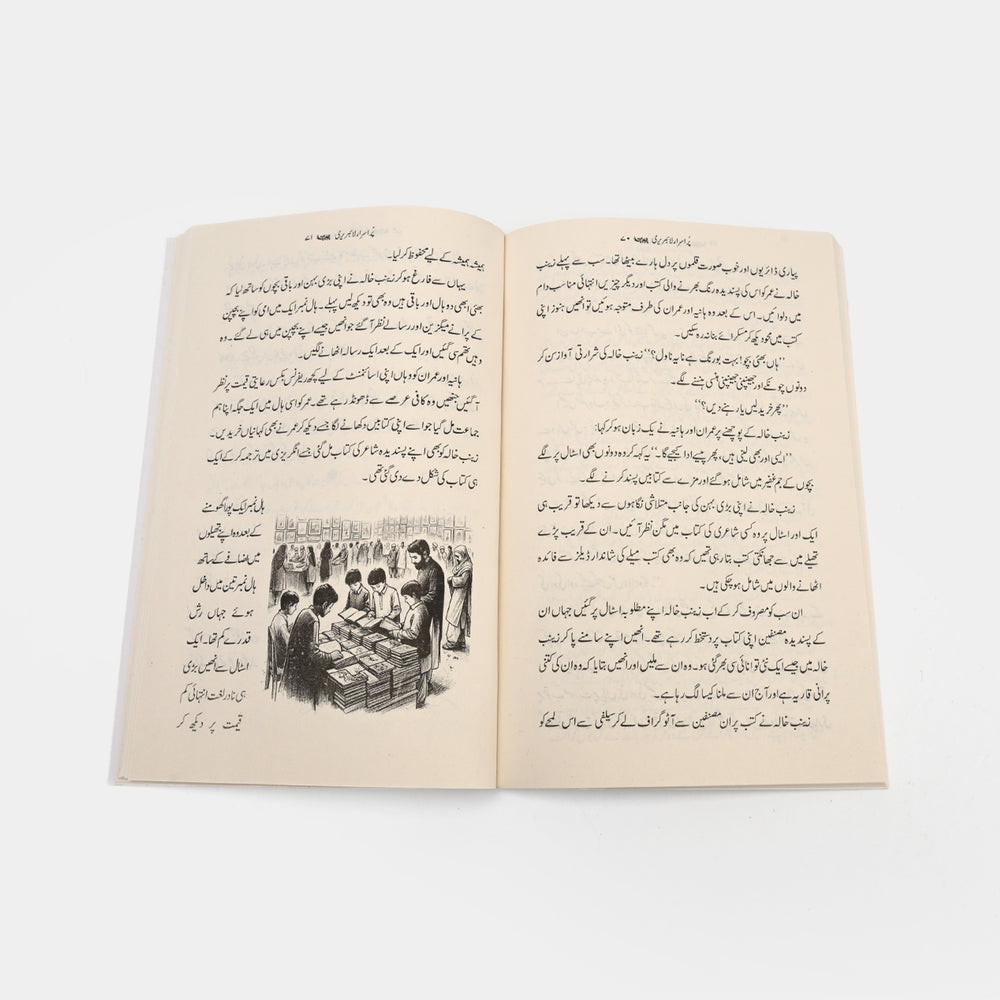 پُراسرار لائبریری ۷۰
پیاری ڈائریوں اور خوب صورت قلموں پر دل ہارے بیٹھا تھا۔ سب سے پہلے زینب
خالہ نے عمر کو اس کی پسندیدہ رنگ بھرنے والی کتب اور دیگر چیزیں انتہائی مناسب دام
میں دلوائیں۔ اس کے بعد وہ ہانیہ اور عمران کی طرف متوجہ ہوئیں تو انھیں ہنوز اپنی
کتب میں محو دیکھ کر مسکرائے بنا نہ رہ سکیں۔
”ہاں بھئی بچو! بہت بورنگ ہے نا یہ ناول؟“ زینب خالہ کی شرارتی آواز سن کر
دونوں چونکے اور جھینپی جھینپی ہنسی ہنسنے لگے۔
”پھر خرید لیں یا رہنے دیں؟“
زینب خالہ کے پوچھنے پر عمران اور ہانیہ نے یک زبان ہو کر کہا:
”ایسی اور بھی لینی ہیں، پھر پیسے ادا کیجیے گا۔“ یہ کہہ کر وہ دونوں بھی اسٹال پر لگے
بچوں کے جم غفیر میں شامل ہو گئے اور مزے سے کتابیں پسند کرنے لگے۔
زینب خالہ نے اپنی بڑی بہن کی جانب متلاشی نگاہوں سے دیکھا تو قریب ہی
ایک اور اسٹال پر وہ کسی شاعری کی کتاب میں مگن نظر آئیں۔ ان کے قریب پڑے
تھیلے میں سے جھانکتی کتب بتا رہی تھیں کہ وہ بھی کتب میلے کی شاندار ڈیلز سے فائدہ
اٹھانے والوں میں شامل ہو چکی ہیں۔
ان سب کو مصروف کر کے اب زینب خالہ اپنے مطلوبہ اسٹال پر گئیں جہاں ان
کے پسندیدہ مصنفین اپنی کتاب پر دستخط کر رہے تھے۔ انھیں اپنے سامنے پا کر زینب
خالہ میں جیسے ایک نئی توانائی سی بھر گئی ہو۔ وہ ان سے ملیں اور انھیں بتایا کہ وہ ان کی کتنی
پرانی قاریہ ہے اور آج ان سے ملنا کیسا لگ رہا ہے۔
زینب خالہ نے کتب پر ان مصنفین سے آٹو گراف لے کر سیلفی سے اس لمحے کو
پُراسرار لائبریری ۷۱
ہمیشہ ہمیشہ کے لیے محفوظ کر لیا۔
یہاں سے فارغ ہو کر زینب خالہ نے اپنی بڑی بہن اور باقی بچوں کو ساتھ لیا کہ
بھئی ابھی دو ہال اور باقی ہیں وہ بھی تو دیکھ لیں پہلے۔ ہال نمبر ایک میں امی کو اپنے بچپن
کے پرانے میگزین اور رسالے نظر آ گئے جو انھیں جیسے اپنے بچپن میں ہی لے گئے۔ وہ
وہیں تھم سی گئیں اور ایک کے بعد ایک رسالہ اٹھانے لگیں۔
ہانیہ اور عمران کو وہاں اپنی اسائنمنٹ کے لیے کچھ ریفرنس بکس رعایتی قیمت پر نظر
آ گئیں جنھیں وہ کافی عرصے سے ڈھونڈ رہے تھے۔ عمر کو اسی ہال میں ایک جگہ اپنا ہم
جماعت مل گیا جو اسے اپنی کتابیں دکھانے لگا جسے دیکھ کر عمر نے بھی کہانیاں خریدیں۔
زینب خالہ کو بھی اپنے پسندیدہ شاعر کی کتاب مل گئی جسے انگریزی میں ترجمہ کر کے ایک
ہی کتاب کی شکل دے دی گئی تھی۔
ہال نمبر ایک پورا گھومنے
کے بعد وہ اپنے تھیلوں
میں اضافے کے ساتھ
ہال نمبر تین میں داخل
ہوئے جہاں رش
قدرے کم تھا۔ ایک
اسٹال سے انھیں بڑی
ہی نادر لغت انتہائی کم
قیمت پر دیکھ کر